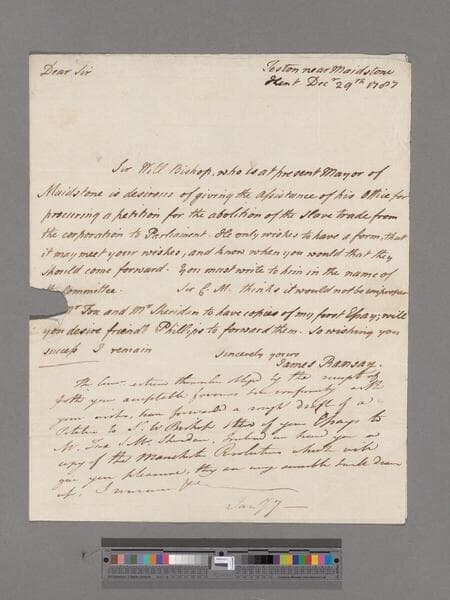 Dear Sir
Teston near Maidstone
Kent Decr 29th 1787
Sir Will Bishop, who is at present Mayor of
Maidstone is desirous of giving the Assistance of his Office for
procuring a petition for the abolition of the slave trade from
the corporation to Parliament. He only wishes to have a form, that
it may meet your wishes, and know when you would that they
should come forward. You must write to him in the name of
Committee. Sir C. M. thinks it would not be improper
Fox and Mr Sheridan to have copies of my first Essay; will
you desire friend Phillips to forward them. So wishing you
success I remain
Sincerely yours
James Ramsay.
The obliged by the receipt of
your acceptable favour in conformity with
your wishes, have forwarded a rough draft of a
Petition to Sr W Bishop & two of your Essays to
Mr Fox & Mr Sheridan, I send you a
copy of the Manchester Resolutions which will
give you pleasure, they are very sensible &
up. I remain &c
Jany 7